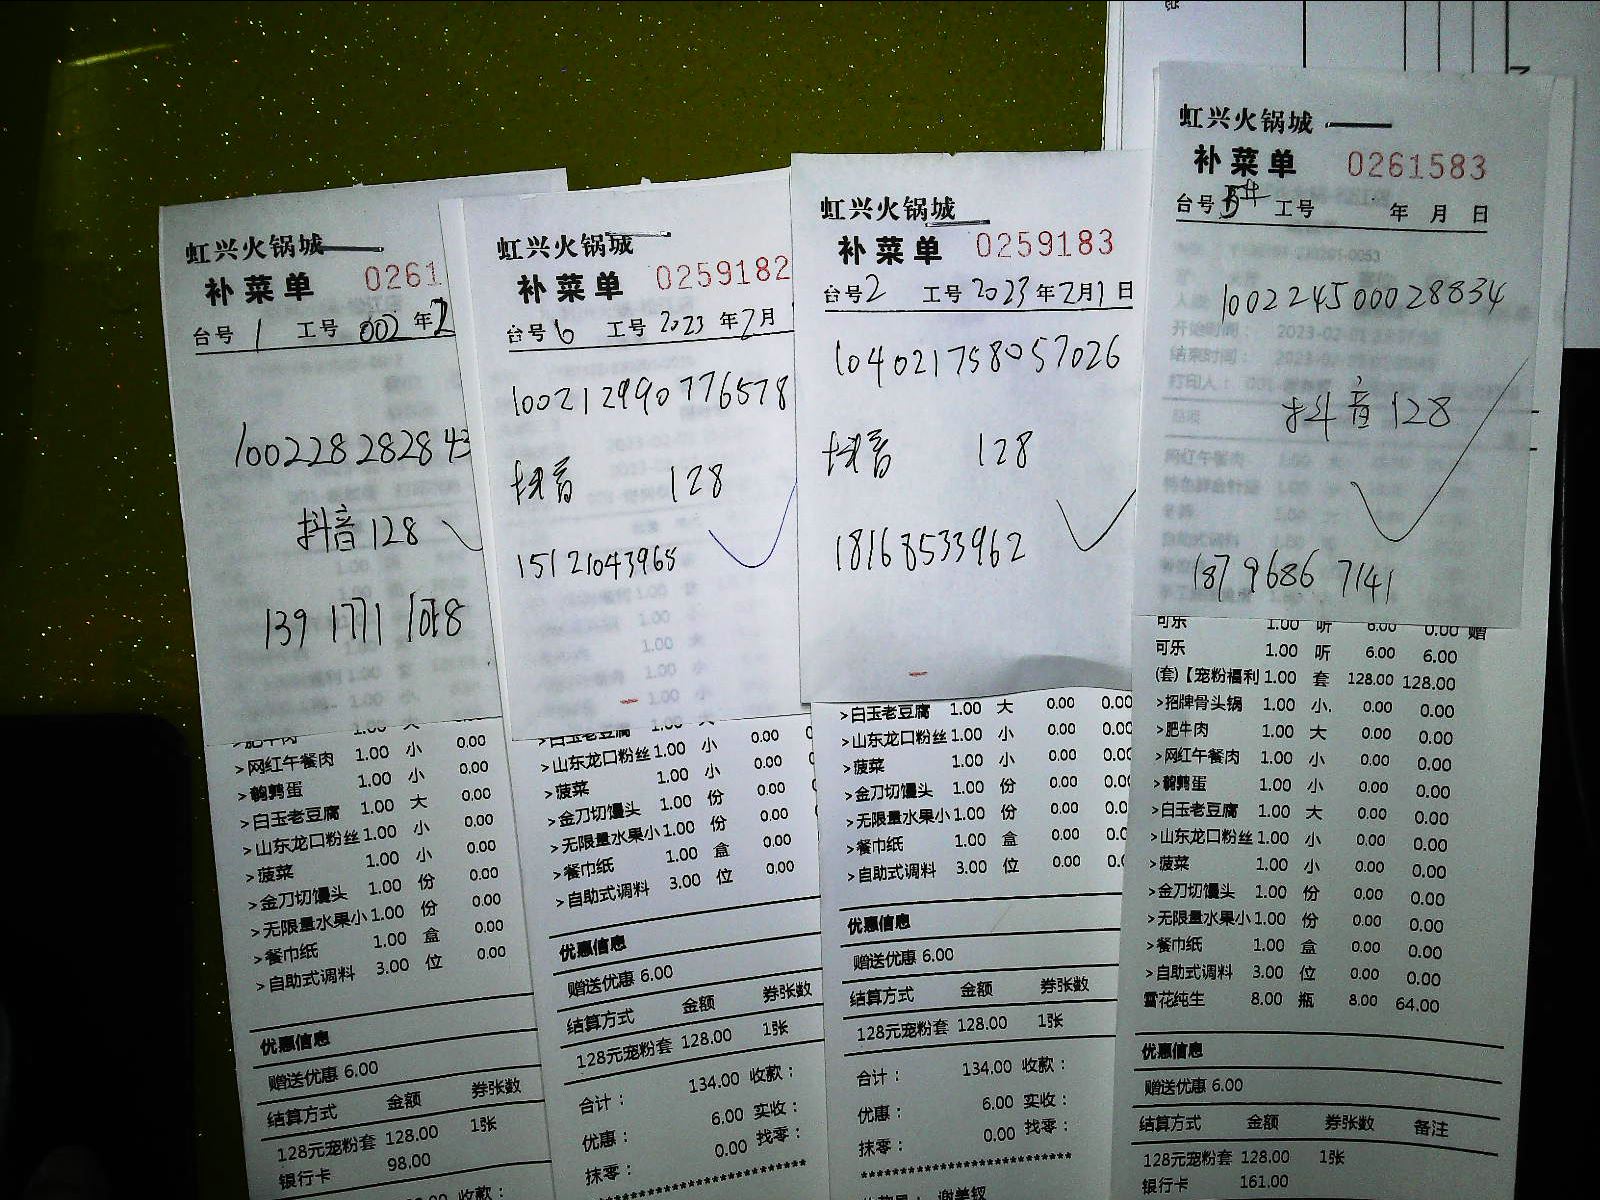 虹兴火锅城
补菜单 0261
台号 1 工号 002 年 2
100228282843
抖音 128
139 1771
>肥牛肉 1.00 大
>网红午餐肉 1.00 小 0.00
>鹌鹑蛋 1.00 小 0.00
>白玉老豆腐 1.00 大 0.00
>山东龙口粉丝 1.00 小 0.00
>菠菜 1.00 小 0.00
>金刀切馒头 1.00 份 0.00
>无限量水果小 1.00 份 0.00
>餐巾纸 1.00 盒 0.00
>自助式调料 3.00 位 0.00
优惠信息
赠送优惠 6.00
结算方式 金额 券张数
128元宠粉套 128.00 1张
银行卡 98.00
收款：
虹兴火锅城
补菜单 0259182
台号 6 工号 2023 年 2 月
100212990776578
抖音 128
15121043965
>白玉老豆腐 1.00 大
>山东龙口粉丝 1.00 小 0.00
>菠菜 1.00 小 0.00
>金刀切馒头 1.00 份 0.00
>无限量水果小 1.00 份 0.00
>餐巾纸 1.00 盒 0.00
>自助式调料 3.00 位 0.00
优惠信息
赠送优惠 6.00
结算方式 金额 券张数
128元宠粉套 128.00 1张
合计： 134.00 收款：
优惠： 6.00 实收：
抹零： 0.00 找零：
虹兴火锅城
补菜单 0259183
台号 2 工号 2023 年 2 月 1 日
104021758057026
抖音 128
18168533962
>白玉老豆腐 1.00 大 0.00 0.00
>山东龙口粉丝 1.00 小 0.00 0.00
>菠菜 1.00 小 0.00 0.00
>金刀切馒头 1.00 份 0.00 0.00
>无限量水果小 1.00 份 0.00 0.00
>餐巾纸 1.00 盒 0.00 0.0
>自助式调料 3.00 位 0.00 0.0
优惠信息
赠送优惠 6.00
结算方式 金额 券张数
128元宠粉套 128.00 1张
合计： 134.00 收款：
优惠： 6.00 实收：
抹零： 0.00 找零：
虹兴火锅城
补菜单 0261583
台号 工号 年 月 日
100224500028834
抖音 128
187 9686 7141
可乐 1.00 听 6.00 0.00 赠
可乐 1.00 听 6.00 6.00
(套)【宠粉福利 1.00 套 128.00 128.00
>招牌骨头锅 1.00 小. 0.00 0.00
>肥牛肉 1.00 大 0.00 0.00
>网红午餐肉 1.00 小 0.00 0.00
>鹌鹑蛋 1.00 小 0.00 0.00
>白玉老豆腐 1.00 大 0.00 0.00
>山东龙口粉丝 1.00 小 0.00 0.00
>菠菜 1.00 小 0.00 0.00
>金刀切馒头 1.00 份 0.00 0.00
>无限量水果小 1.00 份 0.00 0.00
>餐巾纸 1.00 盒 0.00 0.00
>自助式调料 3.00 位 0.00 0.00
雪花纯生 8.00 瓶 8.00 64.00
优惠信息
赠送优惠 6.00
结算方式 金额 券张数 备注
128元宠粉套 128.00 1张
银行卡 161.00